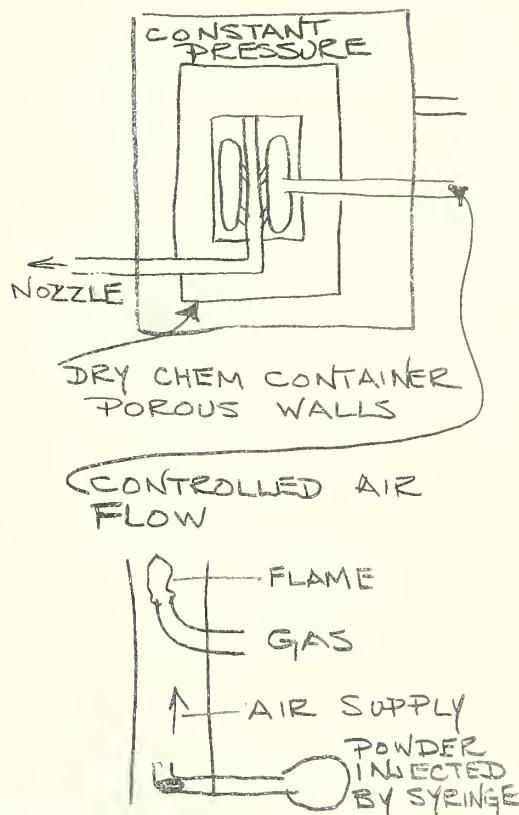 CONSTANT
PRESSURE
NOZZLE
DRY CHEM CONTAINER
POROUS WALLS
CONTROLLED AIR
FLOW
FLAME
GAS
AIR SUPPLY
POWDER
INJECTED
BY SYRINGE